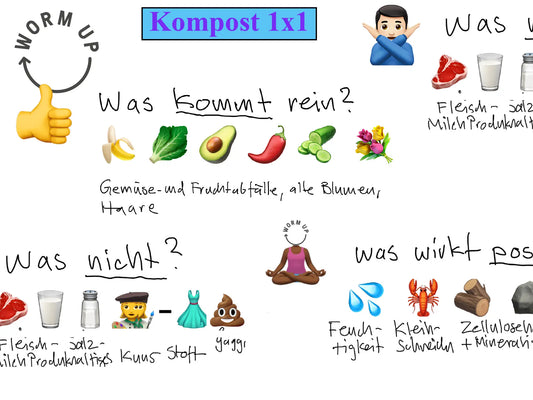 WORM UP
Kompost 1x1
Was
Fleisch- salz-
Milch Produkhaltis
Was kommt rein?
Gemüse- und Fruchtabfälle, alte Blumen,
Haare
WORM UP
Was nicht?
Fleisch- salz-
Milch Produkhaltis
Kuns- Stoff
gaggi
was wirkt pos
Feuch-
tigkeit
Klein-
Schneiden
Zellulose
+ Minerali